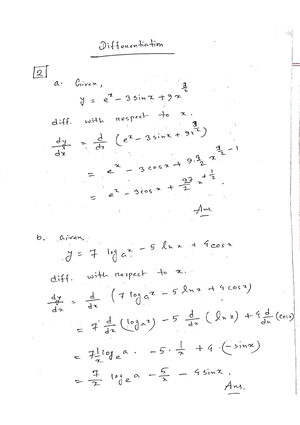 Differentiation
2
a. Given,
y = e^x - 3 sinx + 9x^(3/2)
diff. with respect to x.
dy/dx = d/dx (e^x - 3 sinx + 9x^(3/2))
= e^x - 3 cosx + 9·3/2 x^(3/2 - 1)
= e^x - 3cosx + 27/2 x^(1/2)
Ans
b. Given,
y = 7 log_a x - 5 lnx + 4cosx
diff. with respect to x.
dy/dx = d/dx (7 log_a x - 5 lnx + 4 cosx)
= 7 d/dx (log_a x) - 5 d/dx (lnx) + 4 d/dx (cosx)
= 7 1/x log_e a - 5·1/x + 4·(-sinx)
= 7/x log_e a - 5/x - 4sinx.
Ans.